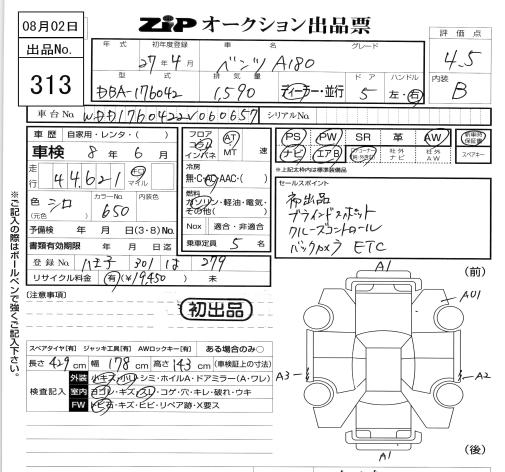 08月02日
出品No.
313
ZiP オークション出品票
評価点
4.5
内装
B
年式 初年度登録 車名 グレード
27年4月 ベンツ A180
型式 排気量 ドア ハンドル
DBA-176042 1,590 ディーラー・並行 5 左・右
車台No. WDD1760422V060657 シリアルNo.
車歴 自家用・レンタ・( )
車検 8年6月
走行 44,621 km マイル
色(元色) シロ カラーNo. 650 内装色
予備検 年 月 日(3・8)No.
書類有効期限 年 月 日
登録No. 八王子 301 は 279
リサイクル料金 有(¥19,450) 未
フロア コラム インパネ AT MT 速
冷房
無・C・AC・AAC・( )
燃料
ガソリン・軽油・電気・その他( )
Nox 適合・非適合
乗車定員 5 名
PS PW SR 革 AW 新車時保証書
ナビ エアB 社外ナビ 社外AW スペアキー
※上記太枠内は標準装備品
セールスポイント
初出品
ブラインドスポット
クルーズコントロール
バックカメラ ETC
[注意事項]
初出品
スペアタイヤ[有] ジャッキ工具[有] AWロックキー[有] ある場合のみ○
長さ 429 cm 幅 178 cm 高さ 143 cm (車検証上の寸法)
検査記入
外装 小キズ・小凹・シミ・ホイルA・ドアミラー(A・ワレ)
室内 ヨゴレ・キズ・スレ・コゲ・穴・キレ・破れ・ウキ
FW トビ石・キズ・ヒビ・リペア跡・X要ス
A1
(前)
AU1
A3
A2
A1
(後)
※ご記入の際はボールペンで強くご記入下さい。